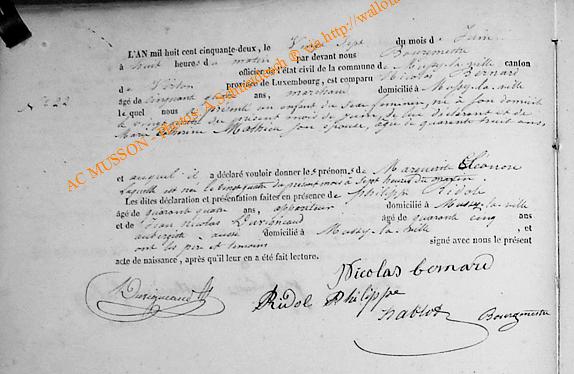 L'AN mil huit cent cinquante-deux, le Vingt Sept du mois de Juin
à huit heures du matin par devant nous Bourgmestre
officier de l'état civil de la commune de Mussy-la-ville canton
de Virton province de Luxembourg, est comparu Nicolas Bernard
âgé de cinquante ans, marchand domicilié à Mussy-la-ville
lequel nous a présenté un enfant de sexe féminin, né à son domicile
le du présent mois de juin, de lui déclarant et de
Mathieu son épouse, âgée de quarante huit ans
N° 22
et auquel il a déclaré vouloir donner les prénoms de Marguerite Eléonore
laquelle est née le du présent mois à sept heures du matin
Les dites déclaration et présentation faites en présence de Philippe Ridol
âgé de quarante quatre ans, domicilié à Mussy-la-ville
et de Jean Nicolas âgé de quarante cinq ans
aubergiste aussi domicilié à Mussy-la-ville, et
ont les père et témoins signé avec nous le présent
acte de naissance, après qu'il leur en a été fait lecture.
Nicolas bernard
Ridol Philippe
Bourgmestre
AC MUSSON - Photos A.S. http://wallo